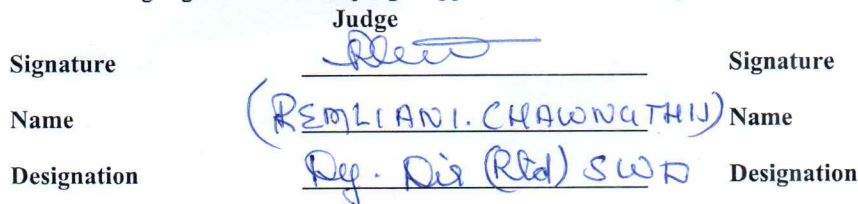 Judge
Signature Signature
Name (REMLIANI. CHAWNGTHU) Name
Designation Dy. Dir (Rtd) SWD Designation